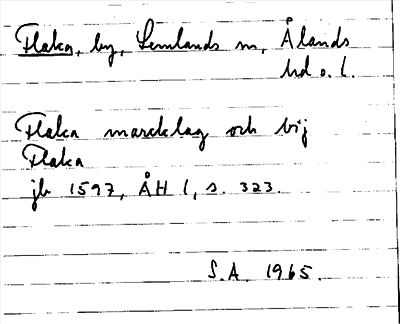 Flaka, by, Lemlands sn, Ålands
hd o. l.
Flaka marcklag och bÿ
Flaka
jb 1597, ÅH 1, s. 323.
S.A. 1965.